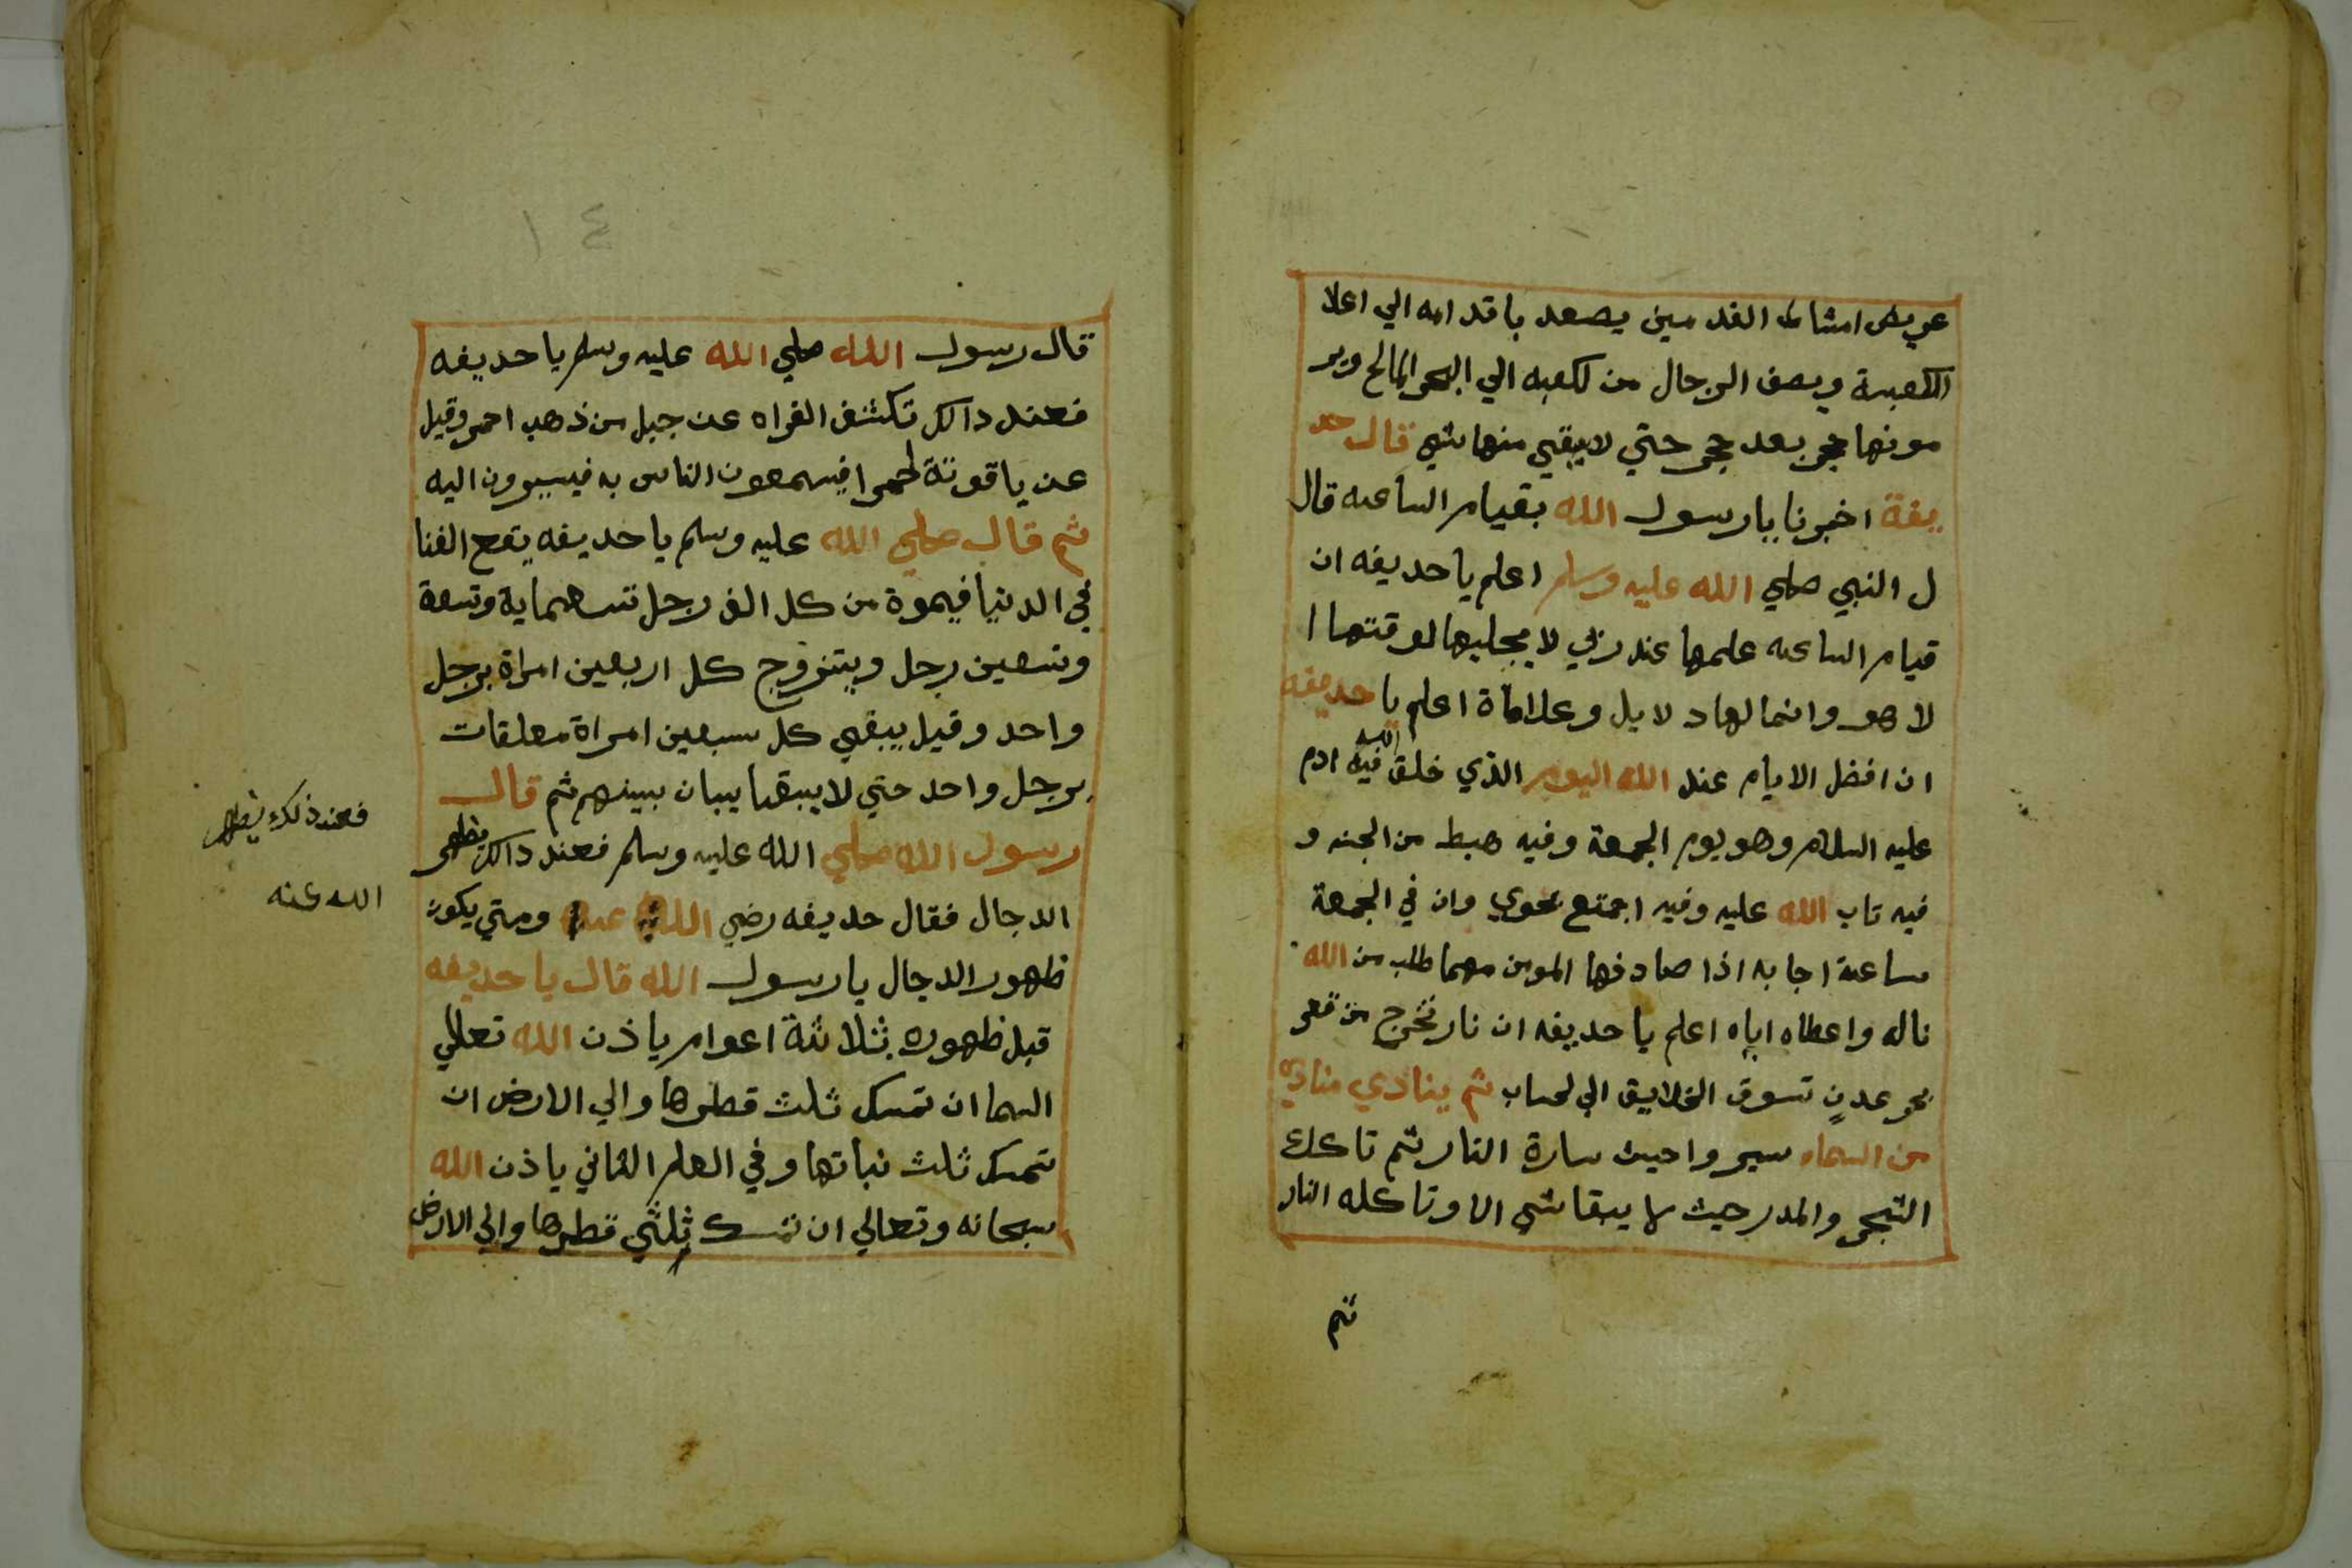 عريض امشاط القدمين يصعد باقدامه الي اعلا
الكعبة ويصف الرجال من لكعبه الي البحر المالح وير
مونها حجر بعد حجر حتي لا يبقي منها شي قال حد
يفة اخبرنا يا رسول الله بقيام الساعه قال
ل النبي صلي الله عليه وسلم اعلم يا حديفه ان
قيام الساعه علمها عند ربي لا يجليها لوقتها ا
لا هو وانما لها دلايل وعلاماة اعلم يا حديفه
ان افضل الايام عند الله اليوم الذي خلق الله فيه ادم
عليه السلام وهو يوم الجمعة وفيه هبط من الجنه و
فيه تاب الله عليه وفيه اجتمع بحوي وان في الجمعة
ساعة اجابه اذا صادفها المومن مهما طلب من الله
ناله واعطاه اياه اعلم يا حديفه ان نار تخرج من قعر
بحر عدن تسوق الخلايق الي لحساب ثم ينادي منادي
من السماء سيروا حيث سارة النار ثم تاكل
الشجر والمدر حيث لا يبقا شي الا وتاكله النار
ثم
١٤
قال رسول الله صلي الله عليه وسلم يا حديفه
فعند دالك تكشف الفراه عن جبل من ذهب احمر وقيل
عن ياقوتة لحمرا فيسمعون الناس به فيسيرون اليه
ثم قال صلي الله عليه وسلم يا حديفه يقع الفنا
في الدنيا فيموة من كل الف رجل تسعماية وتسعة
وتسعين رجل ويتزوج كل اربعين امراة برجل
واحد وقيل يبقي كل سبعين امراة معلقات
برجل واحد حتي لا يبقا يبان بينهم ثم قال
رسول الله صلي الله عليه وسلم فعند دالك يظهر
الدجال فقال حديفه رضي الله عنه ومتي يكون
ظهور الدجال يا رسول الله قال يا حديفه
قبل ظهوره بثلاثة اعوام ياذن الله تعالي
السما ان تمسك ثلث قطرها والي الارض ان
تمسك ثلث نباتها وفي العام الثاني ياذن الله
سبحانه وتعالي ان تمسك ثلثي قطرها والي الارض
فعند ذلك يظهر
الله عنه